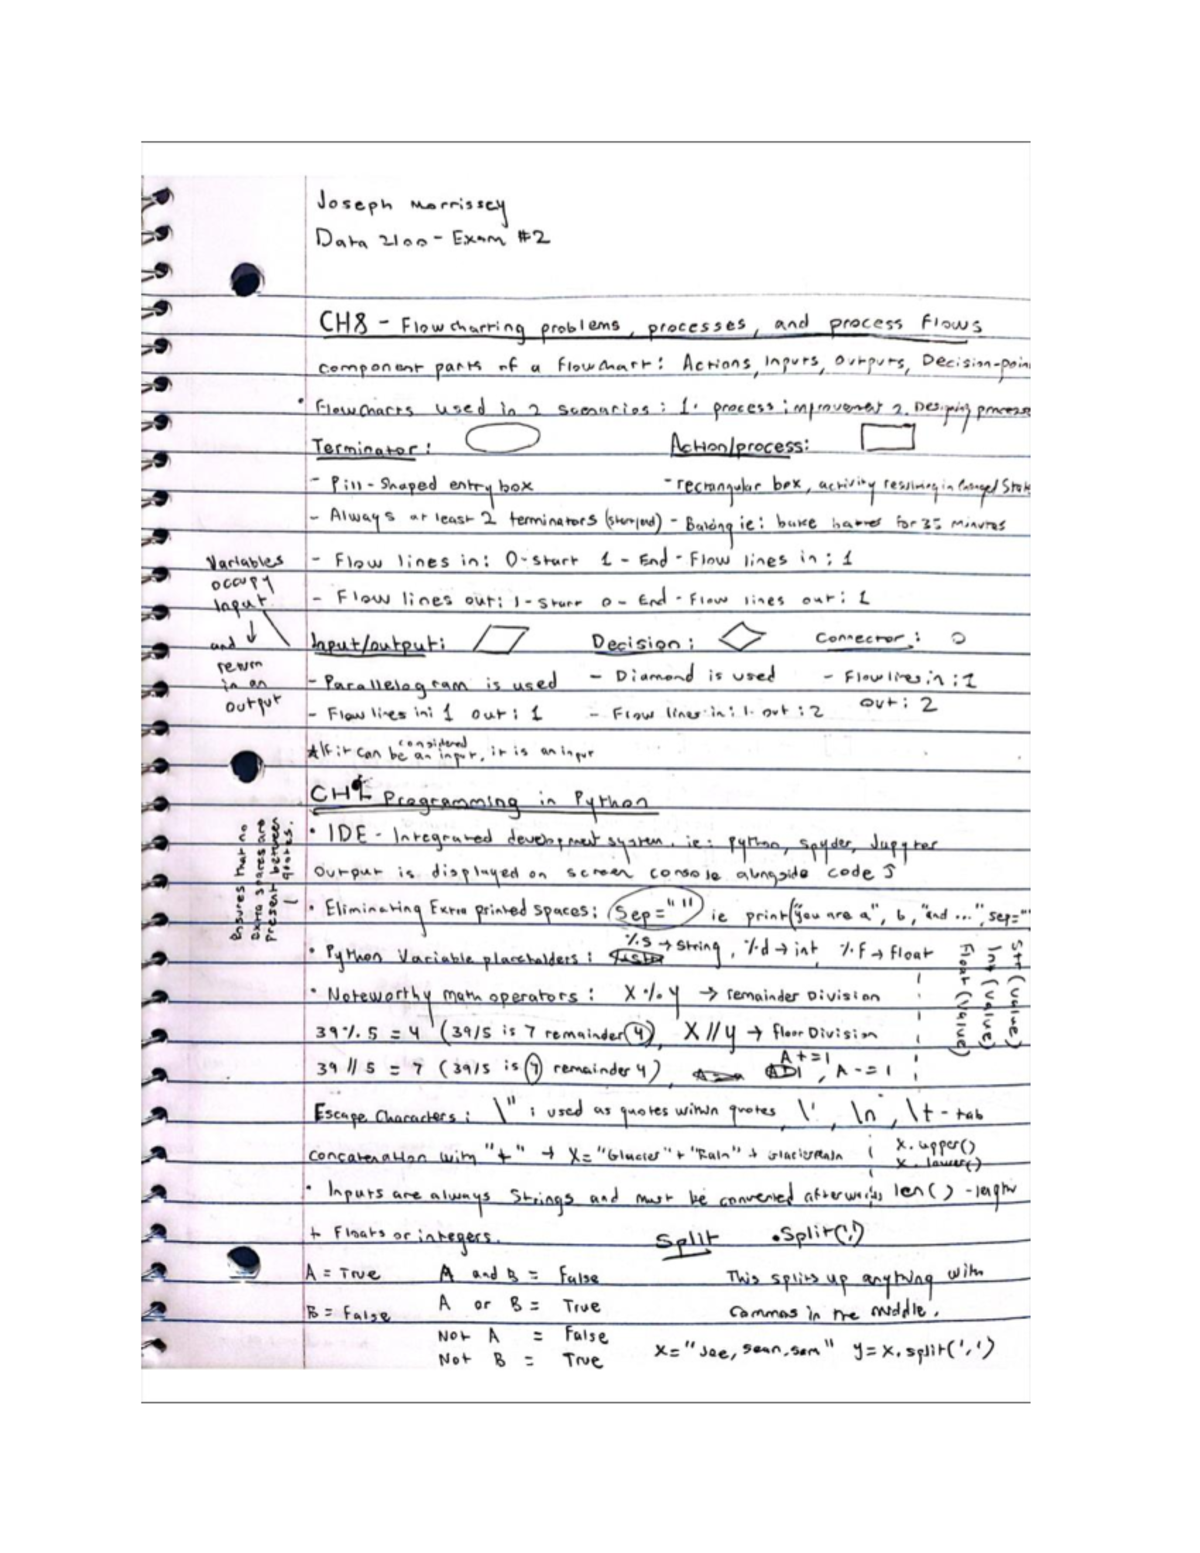 Joseph Morrissey
Data 2100 - Exam #2
CH8 - Flowcharting problems, processes, and process flows
component parts of a flowchart: Actions, Inputs, Outputs, Decision-poin
• Flowcharts used in 2 scenarios: 1. process improvement 2. Designing process
Terminator: Action/process:
- Pill-Shaped entry box - rectangular box, activity resulting in changed State
- Always at least 2 terminators (start/end) - Baking ie: bake for 35 minutes
- Flow lines in: 0-start 1 - End - Flow lines in: 1
- Flow lines out: 1-start 0 - End - Flow lines out: 1
Variables
occupy
Input
and
return
in an
output
Input/output: Decision: Connector:
- Parallelogram is used - Diamond is used - Flow lines in: 1
out: 2
- Flow lines in: 1 out: 1 - Flow lines in: 1. out: 2
*If it can be considered an input, it is an input
CH Programming in Python
• IDE - Integrated development system. ie: Python, Spyder, Jupyter
Output is displayed on screen console alongside code
Ensures that no
extra spaces are
present between
quotes.
• Eliminating Extra printed spaces: Sep="" ie print("you are a", b, "and ...", sep=""
• Python Variable placeholders: %s → string, %d → int, %f → float
Str(value)
Int(value)
Float(value)
• Noteworthy math operators: X % Y → remainder Division
39 % 5 = 4 (39/5 is 7 remainder 4), X // Y → floor Division
39 // 5 = 7 (39/5 is 7 remainder 4), A+=1, A-=1
Escape Characters: \" : used as quotes within quotes, \', \n, \t - tab
concatenation with "+" → X="Glacier" + "Rain" → GlacierRain
x.upper()
x.lower()
• Inputs are always Strings and must be converted afterwards len() - length
to Floats or integers. Split .Split(',')
A = True A and B = False This splits up anything with
B = False A or B = True commas in the middle.
Not A = False
Not B = True
X="Joe, Sean, Sam" y=x.split(',')